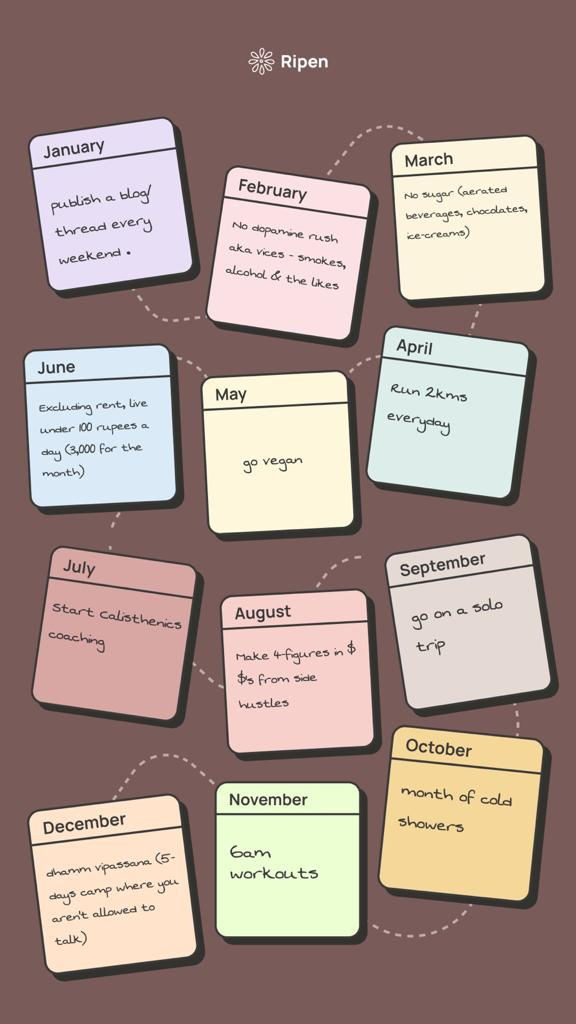 Ripen
January
publish a blog/
thread every
weekend.
February
No dopamine rush
aka vices - smokes,
alcohol & the likes
March
No sugar (aerated
beverages, chocolates,
ice-creams)
April
Run 2kms
everyday
May
go vegan
June
Excluding rent, live
under 100 rupees a
day (3,000 for the
month)
July
Start Calisthenics
coaching
August
Make 4-figures in $
$'s from side
hustles
September
go on a solo
trip
October
month of cold
showers
November
6am
workouts
December
dhamm vipassana (5-
days camp where you
aren't allowed to
talk)